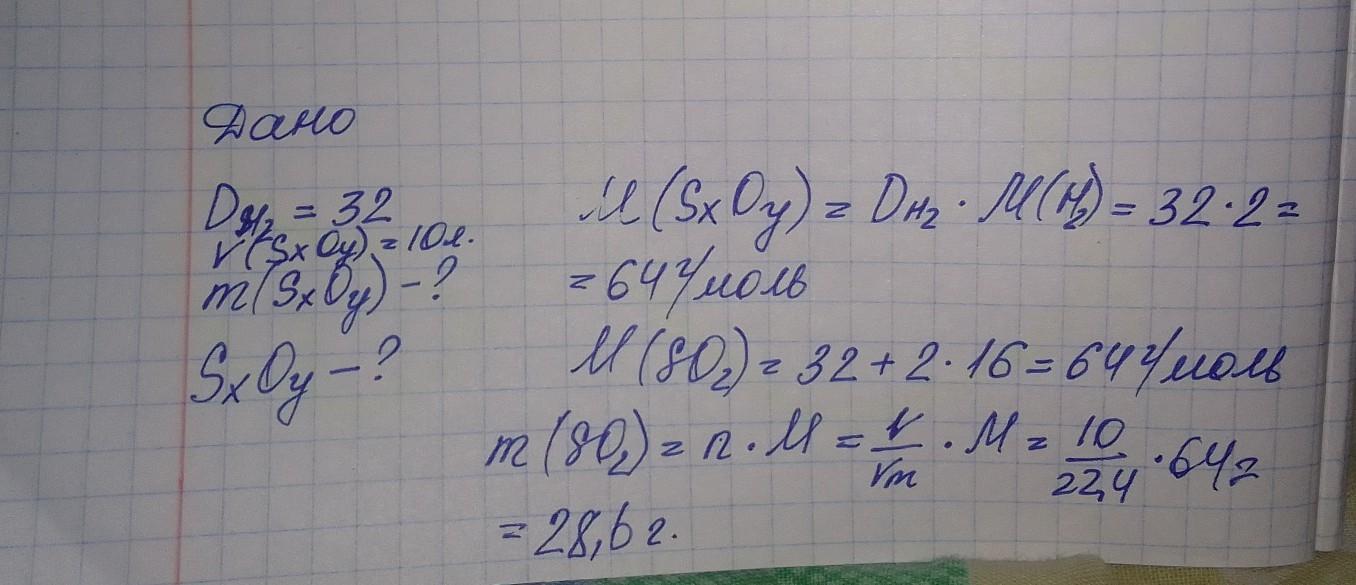 Дано
D H₂ = 32
V(SxOy) = 10л.
m(SxOy) - ?
SxOy - ?
M(SxOy) = D H₂ · M(H₂) = 32 · 2 =
= 64 г/моль
M(SO₂) = 32 + 2 · 16 = 64 г/моль
m(SO₂) = n · M = V/Vm · M = 10/22,4 · 64 =
= 28,6 г.